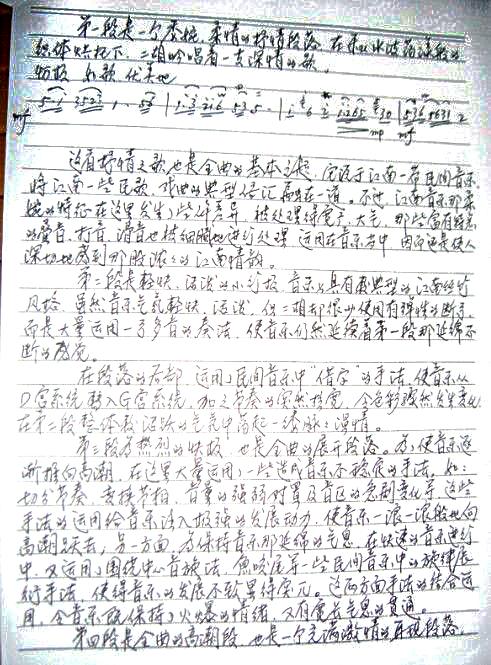 第一段是一个委婉、柔情的抒情段落，在水波荡漾般的
织体衬托下，二胡吟唱着一支深情的歌。
慢板 如歌 优美地
mf mp mf
这首抒情之歌也是全曲的基本主题，它源于江南一带民间音乐
将江南一些民歌、戏曲的典型语汇融在一道。不过，江南音乐那柔
婉的特征在这里发生了些许差异，被处理得宽广、大气，那些富有特色
的叠音、打音、滑音也被细腻地进行处理，运用在音乐当中，因而还是使人
深切地感到那股浓浓的江南情韵。
第二段是轻快、活泼的小行板，音乐具有较典型的江南丝竹
风格，虽然音乐气氛轻快、活泼，但二胡却很少使用有弹性的断弓，
而是大量运用一弓多音的奏法，使音乐仍然延续着第一段那延绵不
断的感觉。
在段落的后部，运用了民间音乐中“借字”的手法，使音乐从
D宫系统转入G宫系统，加之节奏的突然拉宽，令色彩骤然发生变化
在第二段整体较活跃的气氛中荡起一缕脉脉深情。
第三段为热烈的快板，也是全曲的展开段落。为了使音乐逐
渐推向高潮，在这里大量运用了一些造成音乐不稳定的手法，如：
切分节奏、变换节拍、音量的强弱对置及音区的急剧变化等，这些
手法的运用给音乐注入极强的发展动力，使音乐一浪一浪般地向
高潮跃去，另一方面，为保持音乐那延绵的气息，在快速的音乐进行
中，又运用了围绕中心音旋法、鱼咬尾等一些民间音乐中的旋律展
衍手法，使得音乐的发展不致显得零冗。这两方面手法的结合运
用，令音乐既保持了火爆的情绪，又有宽长气息的贯通。
第四段是全曲的高潮段，也是一个充满激情的再现段落。